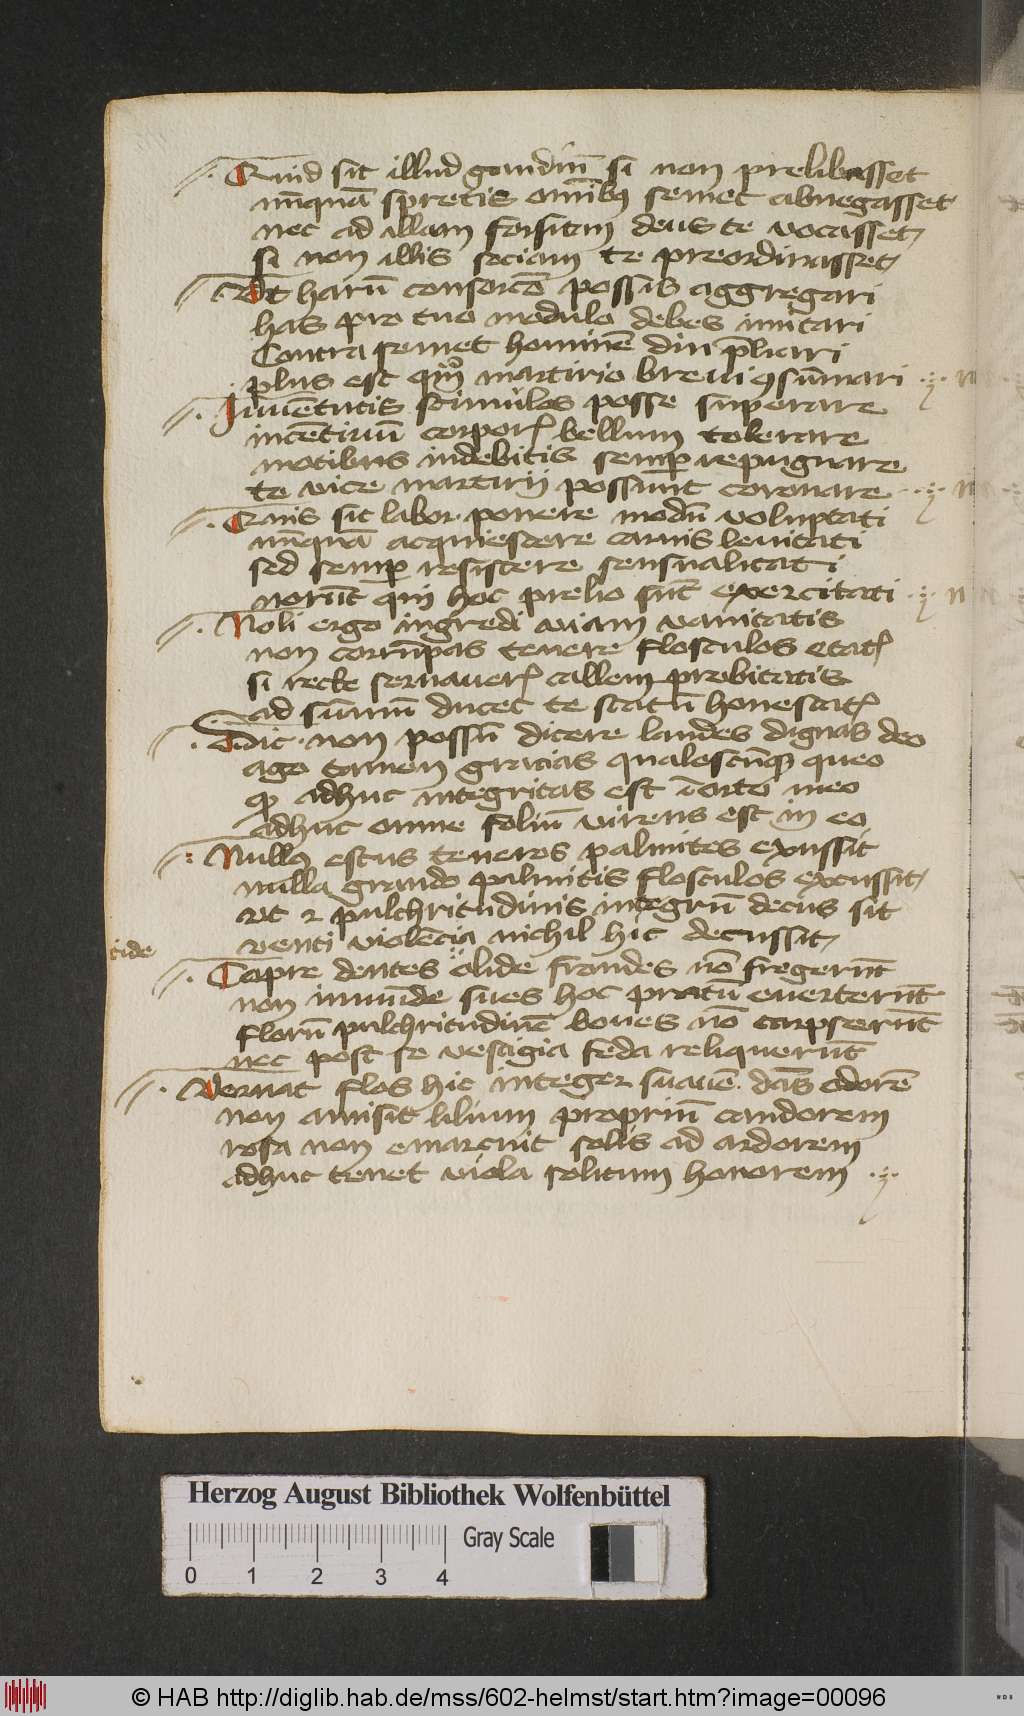 Quid sit illud gaudiū si non prelibasset
nūquā spretis omībꝰ semet abnegasset
nec ad illam forsitam deus te vocasset
si non illis sociam te preordinasset
Vt harū consorcō possis aggregari
has pro tuo modulo debes imitari
Contra semet hominē diu p̄liari
plus est qm̄ martirio breui ꝯsūmari
Iuuētutis stimulos posse superare
incētiuū corporꝭ bellum tolerare
motibus indebitis semꝑ repugnare
te vice martirij possunt coronare
Quis sit labor ponere modū voluptati
nūquā acquiescere carnis leuitati
sed semꝑ resistere sensualitati
norūt qui hoc prelio sūt exercitati
Noli ergo ingredi viam vanitatis
non corrūpas tenere flosculos etatꝭ
si recte seruauerꝭ callem probitatis
ad sūmū ducet te statū honestatꝭ
Dic non possū dicere laudes dignas deo
ago tamen gracias qualescūqꝫ queo
ꝙ adhuc integritas est ī orto meo
adhuc omne foliū virens est in eo
Nullꝰ estus teneros palmites exussit
nulla grando palmitis flosculos excussit
vt ⁊ pulchritudinis integrū decus sit
venti violēcia nichil hic decussit
tide
Capre dentes olide frondes nō fregerūt
non immūde sues hoc pratū euerterūt
florū pulchritudinē boues nō carpserūt
nec post se vestigia feda reliquerūt
Vernat flos hic integer suauē dās odorē
non amisit lilium propriū candorem
rosa non emarcuit solis ad ardorem
adhuc tenet viola solitum honorem
Herzog August Bibliothek Wolfenbüttel
Gray Scale
0 1 2 3 4
© HAB http://diglib.hab.de/mss/602-helmst/start.htm?image=00096